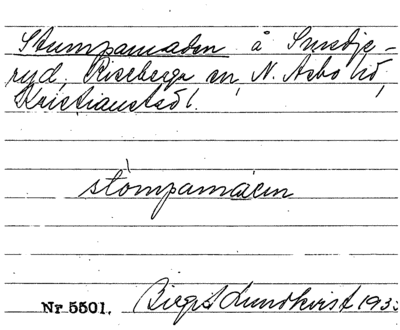 Stumpamaden å Smedje-
ryd, Riseberga sn, N. Åsbo hd,
Kristianstads l.
stòmpamácen
Nr 5501. Birgit Lundkvist 193